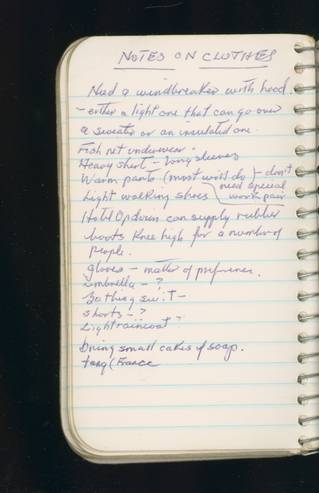 NOTES ON CLOTHES
Need a windbreaker with hood.
- either a light one that can go over
a sweater or an insulated one.
Fish net underwear -
Heavy shirt - long sleeves
Warm pants (most wool do) - don't
need special
work pair
Light walking shoes
Hotel can supply rubber
boots knee high for a number of
people.
gloves - matter of preference.
Umbrella - ?
Bathing suit -
shorts - ?
Light raincoat ?
Bring small cakes of soap.
(France